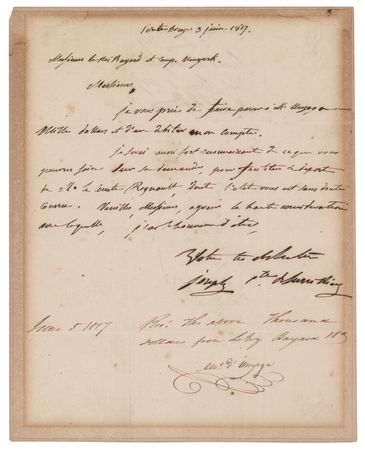 Pointe Breeze 3 juin 1817.
Messieurs le Roi Bayard et comp. Newyork.
Messieurs
je vous prie de faire payer à M.
Mille dollars et d'en débiter mon compte.
je serai aussi fort reconnaissant de ce que vous
pourrez faire sur sa demande, pour faciliter le départ
de M. le Comte Regnault dont l'état vous est sans doute
Connu. Veuillez, Messieurs, agréer la haute considération
avec laquelle, j'ai l'honneur d'être,
Votre très
joseph Cte de Survilliers
June 5 1817 Recd the above Thousand
dollars from LeRoy Bayard